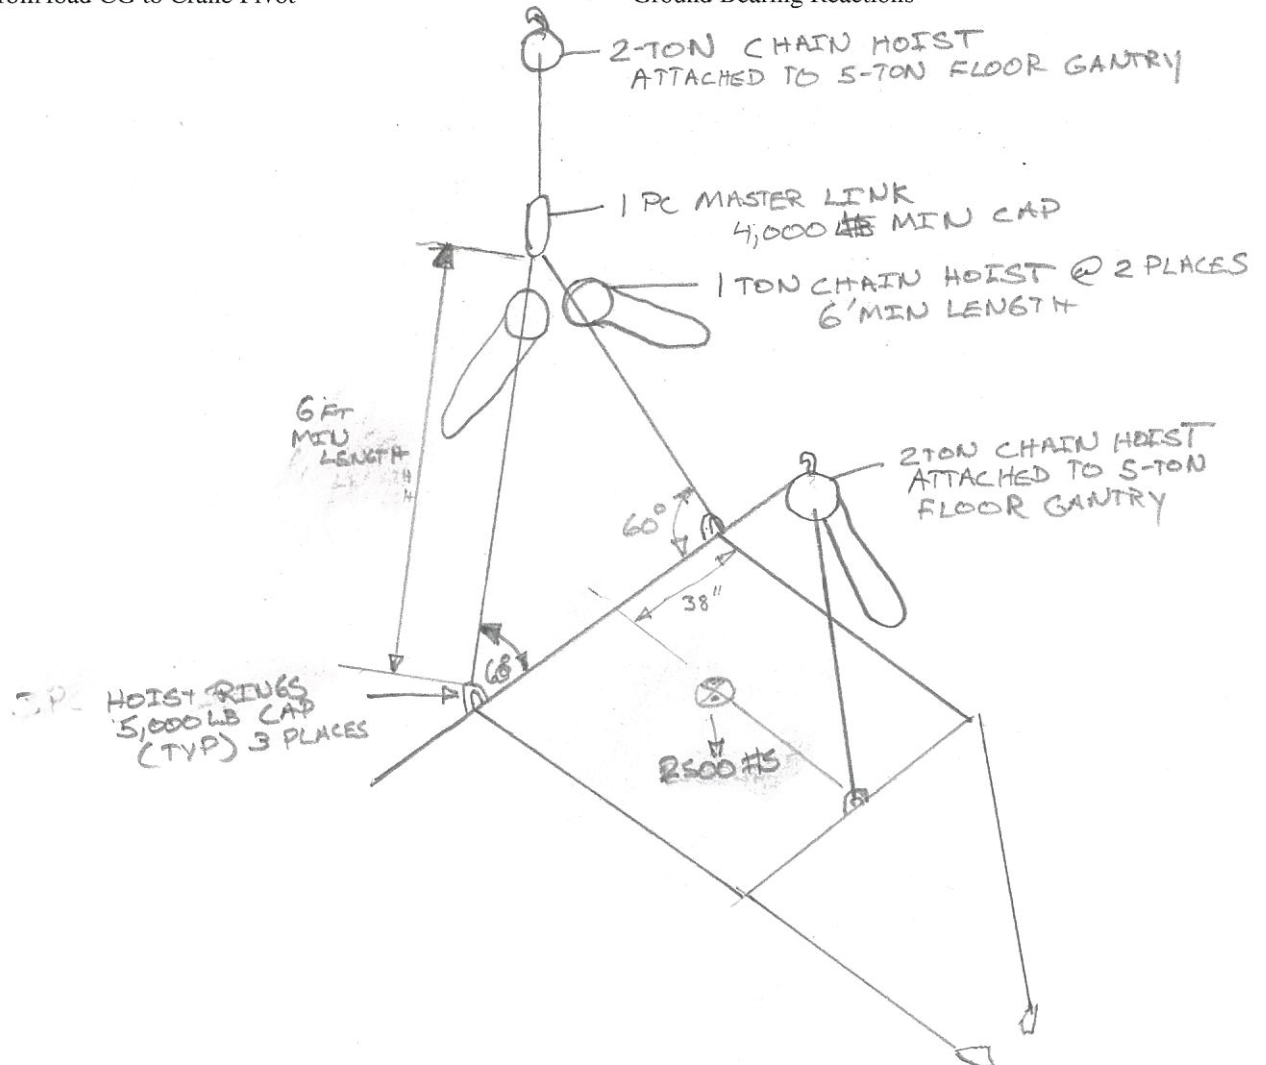 from load CG to Crane Pivot
Ground Bearing Reactions
2-TON CHAIN HOIST
ATTACHED TO 5-TON FLOOR GANTRY
1 PC MASTER LINK
4,000 LB MIN CAP
1 TON CHAIN HOIST @ 2 PLACES
6' MIN LENGTH
6 FT
MIN
LENGTH
2 TON CHAIN HOIST
ATTACHED TO 5-TON
FLOOR GANTRY
60°
38"
60°
HOIST RINGS
5,000 LB CAP
(TYP) 3 PLACES
2500 #S